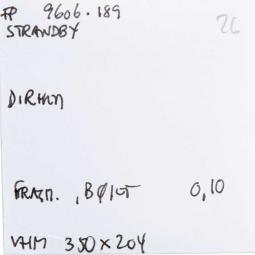 FP 9606.189
26
STRANDBY
DIRHM
FRAGM., BØJET 0,10
VHM 350 x 204